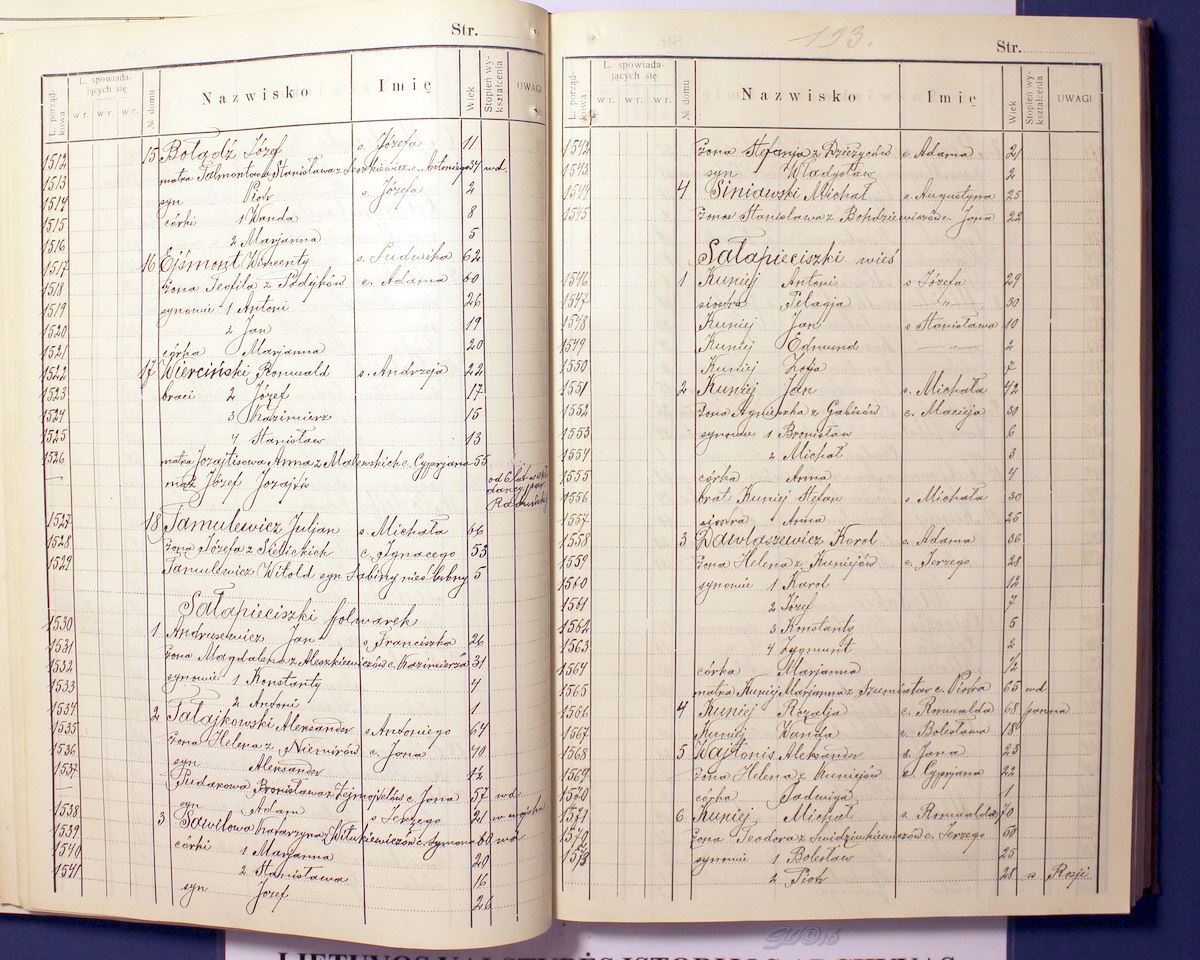 Str.
L. porządkowa
L. spowiadających się
w r. w r. w r.
№ domu
Nazwisko
Imię
Wiek
Stopień wykształcenia
UWAGI
1512 15 Bołądź Józef s. Józefa 11
1513 matka Stanisława z c. Antoniego 34 wd.
1514 syn Piotr s. Józefa 2
1515 córki 1 Wanda 8
1516 2 Marjanna 5
1517 16 Ejsmont Wincenty s. Ludwika 62
1518 żona Teofila z c. Adama 60
1519 synowie 1 Antoni 26
1520 2 Jan 19
1521 córka Marjanna 20
1522 17 Wierciński Romuald s. Andrzeja 22
1523 braci 2 Józef 17
1524 3 Kazimierz 15
1525 4 Stanisław 13
1526 matka Jozajtisowa Anna z Malewskich c. Cyprjana 55
— mąż Józef Jozajtis od 6 lat
1527 18 Tamulewicz Juljan s. Michała 66
1528 żona Józefa z Sielickich c. Ignacego 53
1529 Tamulewicz Witold syn Sabiny nieślubny 5
Sałapieciszki folwark
1530 1 Andrusewicz Jan s. Franciszka 26
1531 żona Magdalena z Aleszkiewiczów c. Kazimierza 31
1532 synowie 1 Konstanty 4
1533 2 Antoni 1
1534 2 Tałajkowski Aleksander s. Antoniego 64
1535 żona Helena z Niemirów c. Jana 40
1536 syn Aleksander 12
1537 Pudakowa Bronisława z c. Jana 57 wd.
— syn Adam s. Jerzego 21 w wojsku
1538 3 Sawiłowa Katarzyna z Witukiewiczów c. Szymona 60 wd
1539 córki 1 Marjanna 20
1540 2 Stanisława 16
1541 syn Józef 26
193.
Str.
L. porządkowa
L. spowiadających się
w r. w r. w r.
№ domu
Nazwisko
Imię
Wiek
Stopień wykształcenia
UWAGI
1542 żona Stefanja z c. Adama 21
1543 syn Władysław 2
1544 4 Siniawski Michał s. Augustyna 25
1545 żona Stanisława z Bohdziewiczów c. Jana 22
Sałapieciszki wieś
1546 1 Kuniej Antoni s Józefa 29
1547 siostra Pelagja — „ — 30
1548 Kuniej Jan s Stanisława 10
1549 Kuniej Edmund — „ — 2
1550 Kuniej Zofia 7
1551 2 Kuniej Jan s. Michała 42
1552 żona Agnieszka z Gabisów c. Macieja 30
1553 synowie 1 Bronisław 6
1554 2 Michał 3
1555 córka Anna 4
1556 brat Kuniej Stefan s Michała 30
1557 siostra " Anna 25
1558 3 Dawlaszewicz Karol s. Adama 36
1559 żona Helena z Kuniejów c. Jerzego 28
1560 synowie 1 Karol 12
1561 2 Józef 7
1562 3 Konstanty 5
1563 4 Zygmunt 2
1564 córka Marjanna 1/2
1565 matka Kuniej Marjanna z c. Piotra 65 wd
1566 4 Kuniej Rozalja c. Romualda 68 panna
1567 Kuniej Wanda c. Bolesława 18
1568 5 Wajtonis Aleksander s. Jana 23
1569 żona Helena z Kuniejów c. Cyprjana 22
1570 córka Jadwiga 1
1571 6 Kuniej Michał s. Romualda 70
1572 żona Teodora z Swidziukiewiczów c. Jerzego 60
1573 synowie 1 Bolesław 25
2 Piotr 28 w Rosji
LIETUVOS VALSTYBĖS ISTORIJOS ARCHYVAS